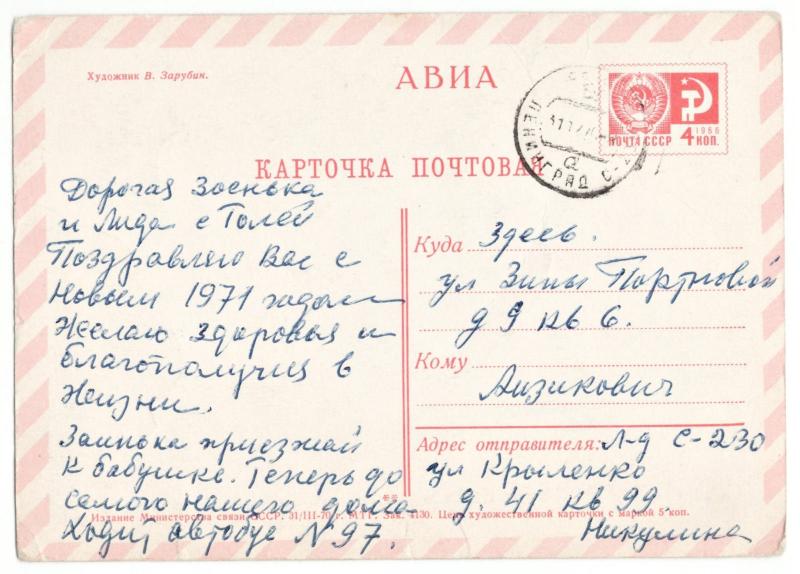 Художник В. Зарубин.
АВИА
ЛЕНИНГРАД С-
ПОЧТА СССР 4 КОП.
1966
КАРТОЧКА ПОЧТОВАЯ
Дорогая Зоенька
и Лида с Толей
Поздравляю Вас с
Новым 1971 годом
Желаю здоровья и
благополучия в
жизни.
Заинька приезжай
к бабушке. Теперь до
самого нашего дома
ходит автобус N 97.
Куда Здесь.
ул Зины Портновой
д 9 кв 6.
Кому
Айзикович
Адрес отправителя: Л-д С-230
ул Крыленко
д. 41 кв 99
Никулина
Издание Министерства связи СССР. 31/III-70 г. МТГ. Зак. 4130. Цена художественной карточки с маркой 5 коп.